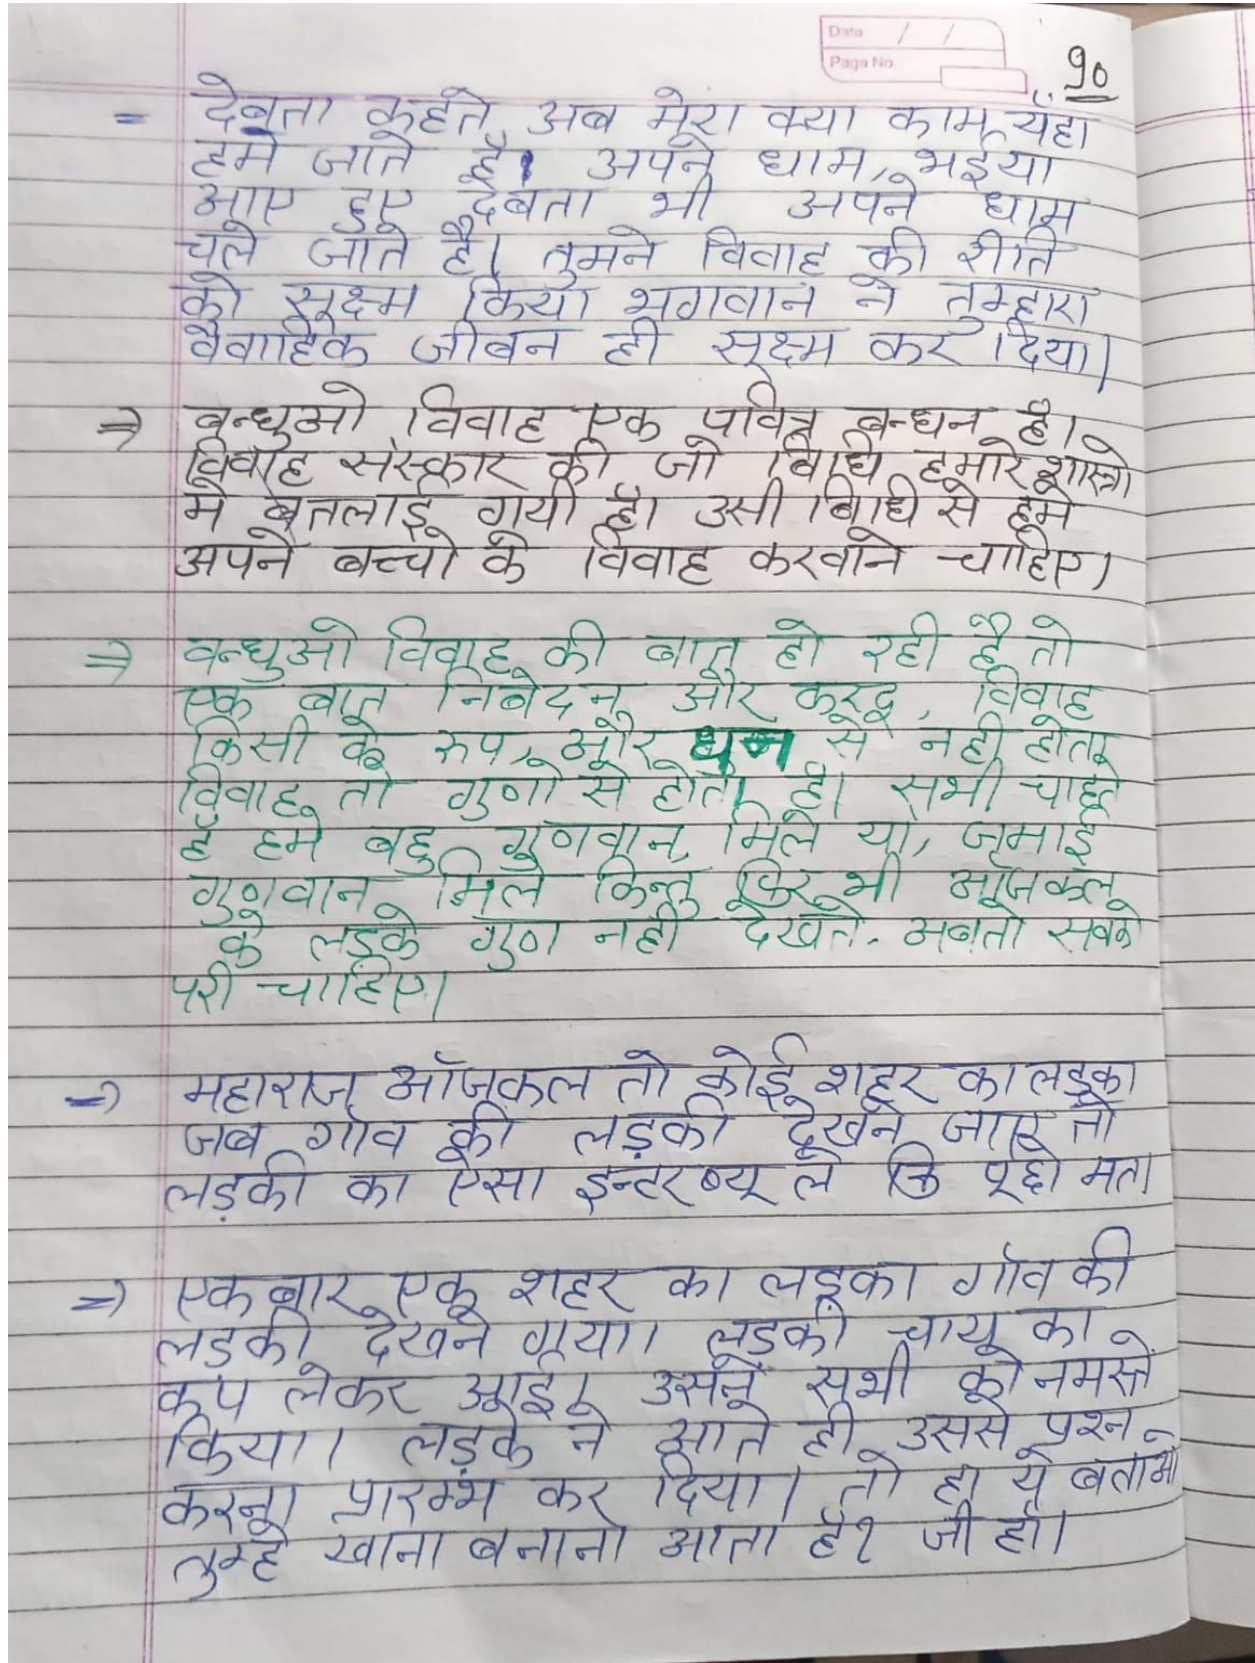 Date / /
Page No.
90
= देवता कहते अब मेरा क्या काम यहाँ
हमे जाते है। अपने धाम, भईया
आए हुए देवता भी अपने धाम
चले जाते है। तुमने विवाह की रीति
को सूक्ष्म किया भगवान ने तुम्हारा
वैवाहिक जीवन ही सूक्ष्म कर दिया।
⇒ बन्धुओ विवाह एक पवित्र बन्धन है।
विवाह संस्कार की जो विधि हमारे शास्त्रो
मे बतलाई गयी है। उसी विधि से हमे
अपने बच्चो के विवाह करवाने चाहिए।
⇒ बन्धुओ विवाह की बात हो रही है तो
एक बात निबेदन और करदू, विवाह
किसी के रुप, और धन से नही होता
विवाह तो गुणो से होता है। सभी चाहते
है हमे बहु गुणवान मिले या, जमाई
गुणवान मिले किन्तु फिर भी आजकल
के लड़के गुण नही देखते. अबतो सबको
परी चाहिए।
⇒ महाराज आॅजकल तो कोई शहर का लड़का
जब गाॅव की लड़की देखने जाए तो
लड़की का ऐसा इन्टरव्यू ले कि पूछो मत।
⇒ एक बार एक शहर का लड़का गाॅव की
लड़की देखने गया। लड़की चाय का
कप लेकर आई। उसने सभी को नमस्ते
किया। लड़के ने आते ही उससे प्रश्न
करना प्रारम्भ कर दिया। तो हा ये बताओ
तुम्हे खाना बनाना आता है? जी हाॅ।